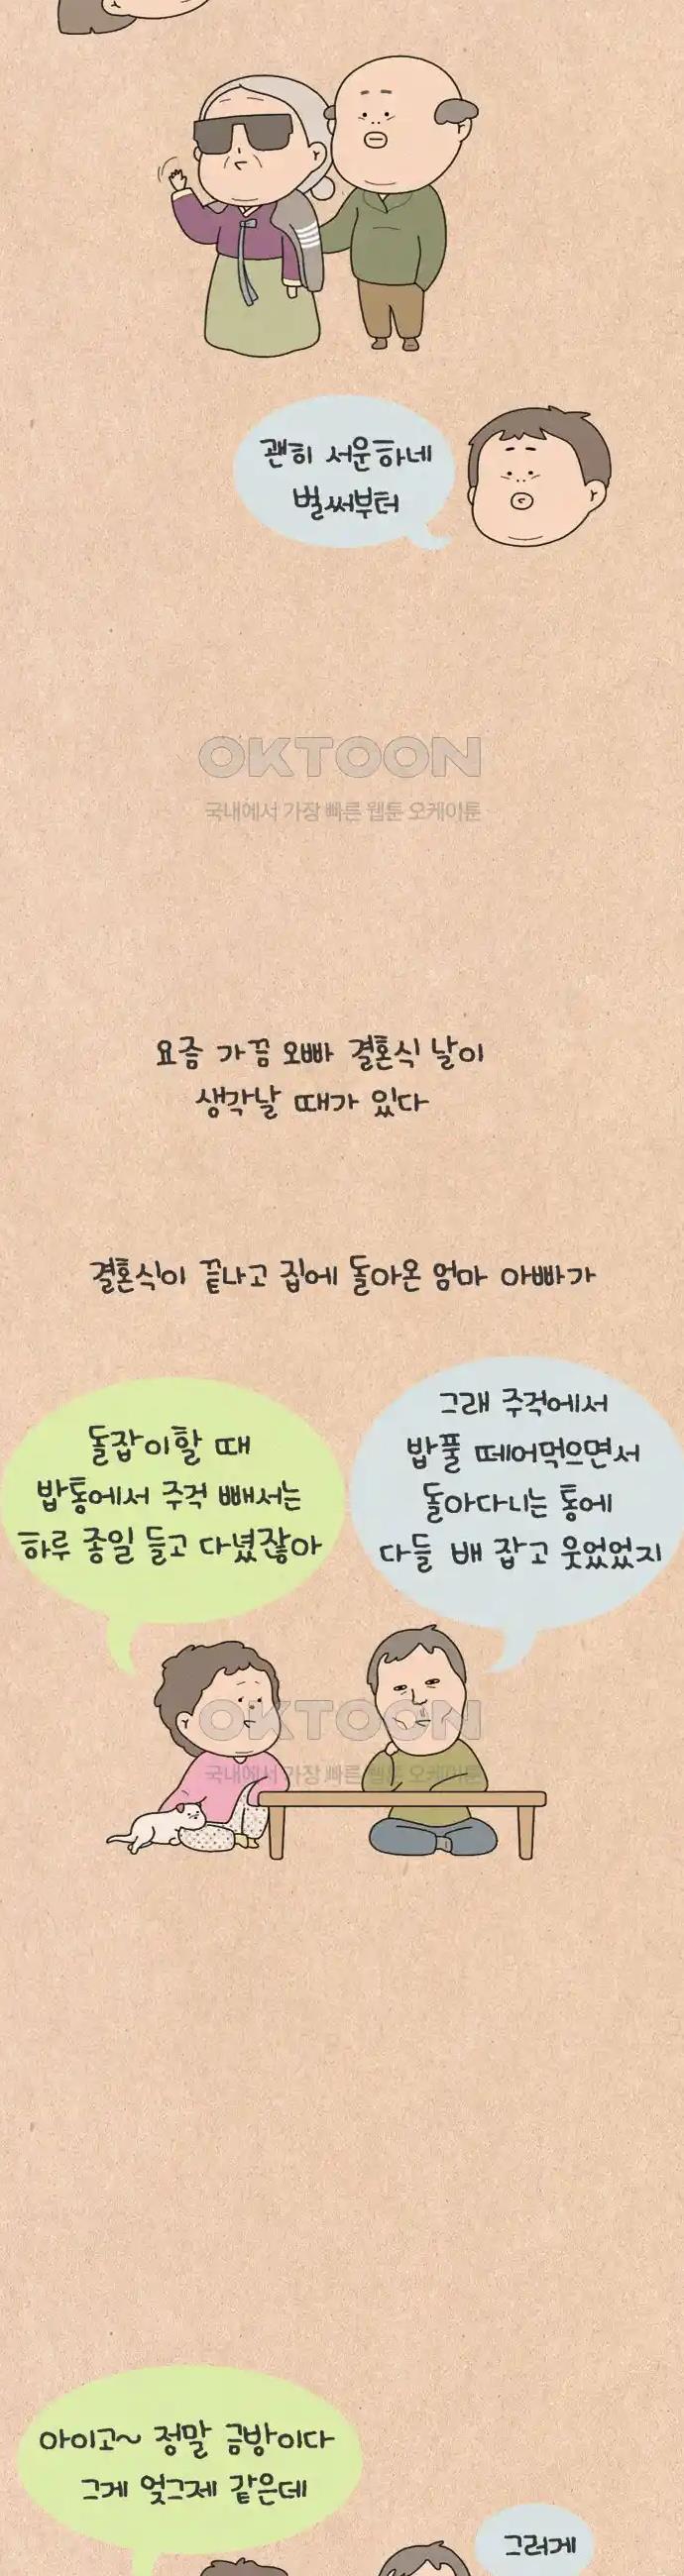 괜히 서운하네
벌써부터
OKTOON
국내에서 가장 빠른 웹툰 오케이툰
요즘 가끔 오빠 결혼식 날이
생각날 때가 있다
결혼식이 끝나고 집에 돌아온 엄마 아빠가
돌잡이할 때
밥통에서 주걱 빼서는
하루 종일 들고 다녔잖아
그래 주걱에서
밥풀 떼어먹으면서
돌아다니는 통에
다들 배 잡고 웃었었지
OKTOON
국내에서 가장 빠른 웹툰 오케이툰
아이고~ 정말 금방이다
그게 엊그제 같은데
그러게